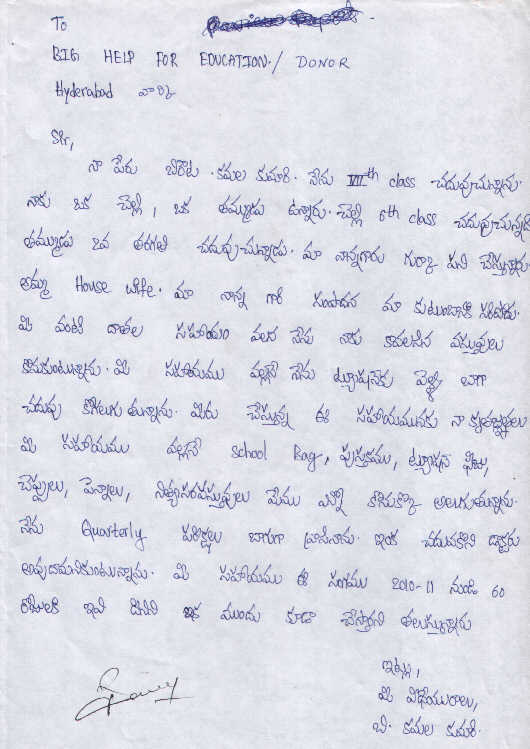 To
BIG HELP FOR EDUCATION./ DONOR
Hyderabad వార్కి
Sir,
నా పేరు బిరొట. కమల కుమారి. నేను VII th class చదువుచున్నాను.
నాకు ఒక చెల్లి, ఒక తమ్ముడు ఉన్నారు. చెల్లి 6th class చదువుచున్నది
తమ్ముడు 2వ తరగతి చదువుచున్నాడు. మా నాన్నగారు గుర్కా పని చేస్తున్నారు
అమ్మ House wife. మా నాన్న గారి సంపాదన మా కుటుంబానికి సరిపోదు.
మీ వంటి దాతల సహాయం వలన నేను నాకు కావలసిన వస్తువులు
కొనుకుంటున్నాను. మీ సహాయము వల్లనే నేను ట్యూషన్‌కు వెళ్ళి బాగా
చదువు కోగలుగుతున్నాను. మీరు చేస్తున్న ఈ సహాయమునకు నా కృతజ్ఞతలు
మీ సహాయము వల్లనే school Bag, పుస్తకము, ట్యూషన్ ఫీజు,
చెప్పులు, పెన్నాలు, నిత్యసరవస్తువులు మేము ఎన్నో కొనుక్కో అలుగుతున్నాను.
నేను Quarterly పరీక్షలు బాగుగా వ్రాసినాను. ఇంక చదువకొని డాక్టరు
అవుదామనికుంటున్నాను. మీ సహాయము ఈ సంగము 2010-11 నుండి 60
రోజులకి ఇవి ఇక ముందు కూడా చేస్తారని తలుస్తున్నారు
ఇట్లు,
మీ విధేయురాలు,
బి. కమల కుమారి.